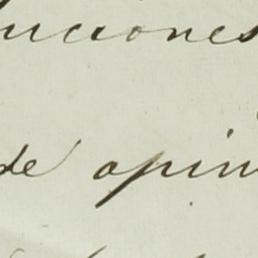 uciones
de opin